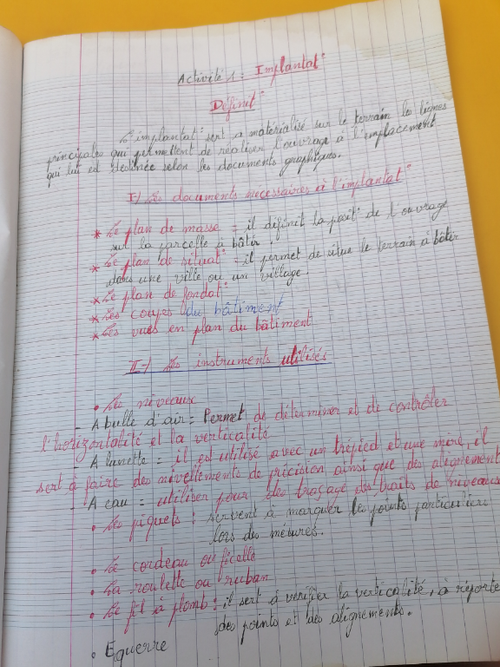 Activité 1 : Implantat°
Définit°
L'implantat° sert à matérialisé sur le terrain les lignes
principales qui permettent de réaliser l'ouvrage à l'emplacement
qui lui est destinée selon les documents graphiques.
I-) Les documents nécessaires à l'implantat°
* Le plan de masse = il définit la posit° de l'ouvrage
sur la parcelle à bâtir
* Le plan de situat° = il permet de situe le terrain à bâtir
dans une ville ou un village
* Le plan de fondat°
* Les coupes du bâtiment
* Les vues en plan du bâtiment
II-) Les instruments utilisés
• Les niveaux
- A bulle d'air = Permet de déterminer et de contrôler
l'horizontalité et la verticalité
- A lunette = il est utilisé avec un trépied et une mire, il
sert à faire des nivellements de précision ainsi que des alignement
- A eau = utiliser pour les traçage des traits de niveaux
• Les piquets : servent à marquer les points particulière
lors des mesures.
• Le cordeau ou ficelle
• La roulette ou ruban
• Le fil à plomb : il sert à vérifier la verticalité, à reporte
des points et des alignements.
• Equerre